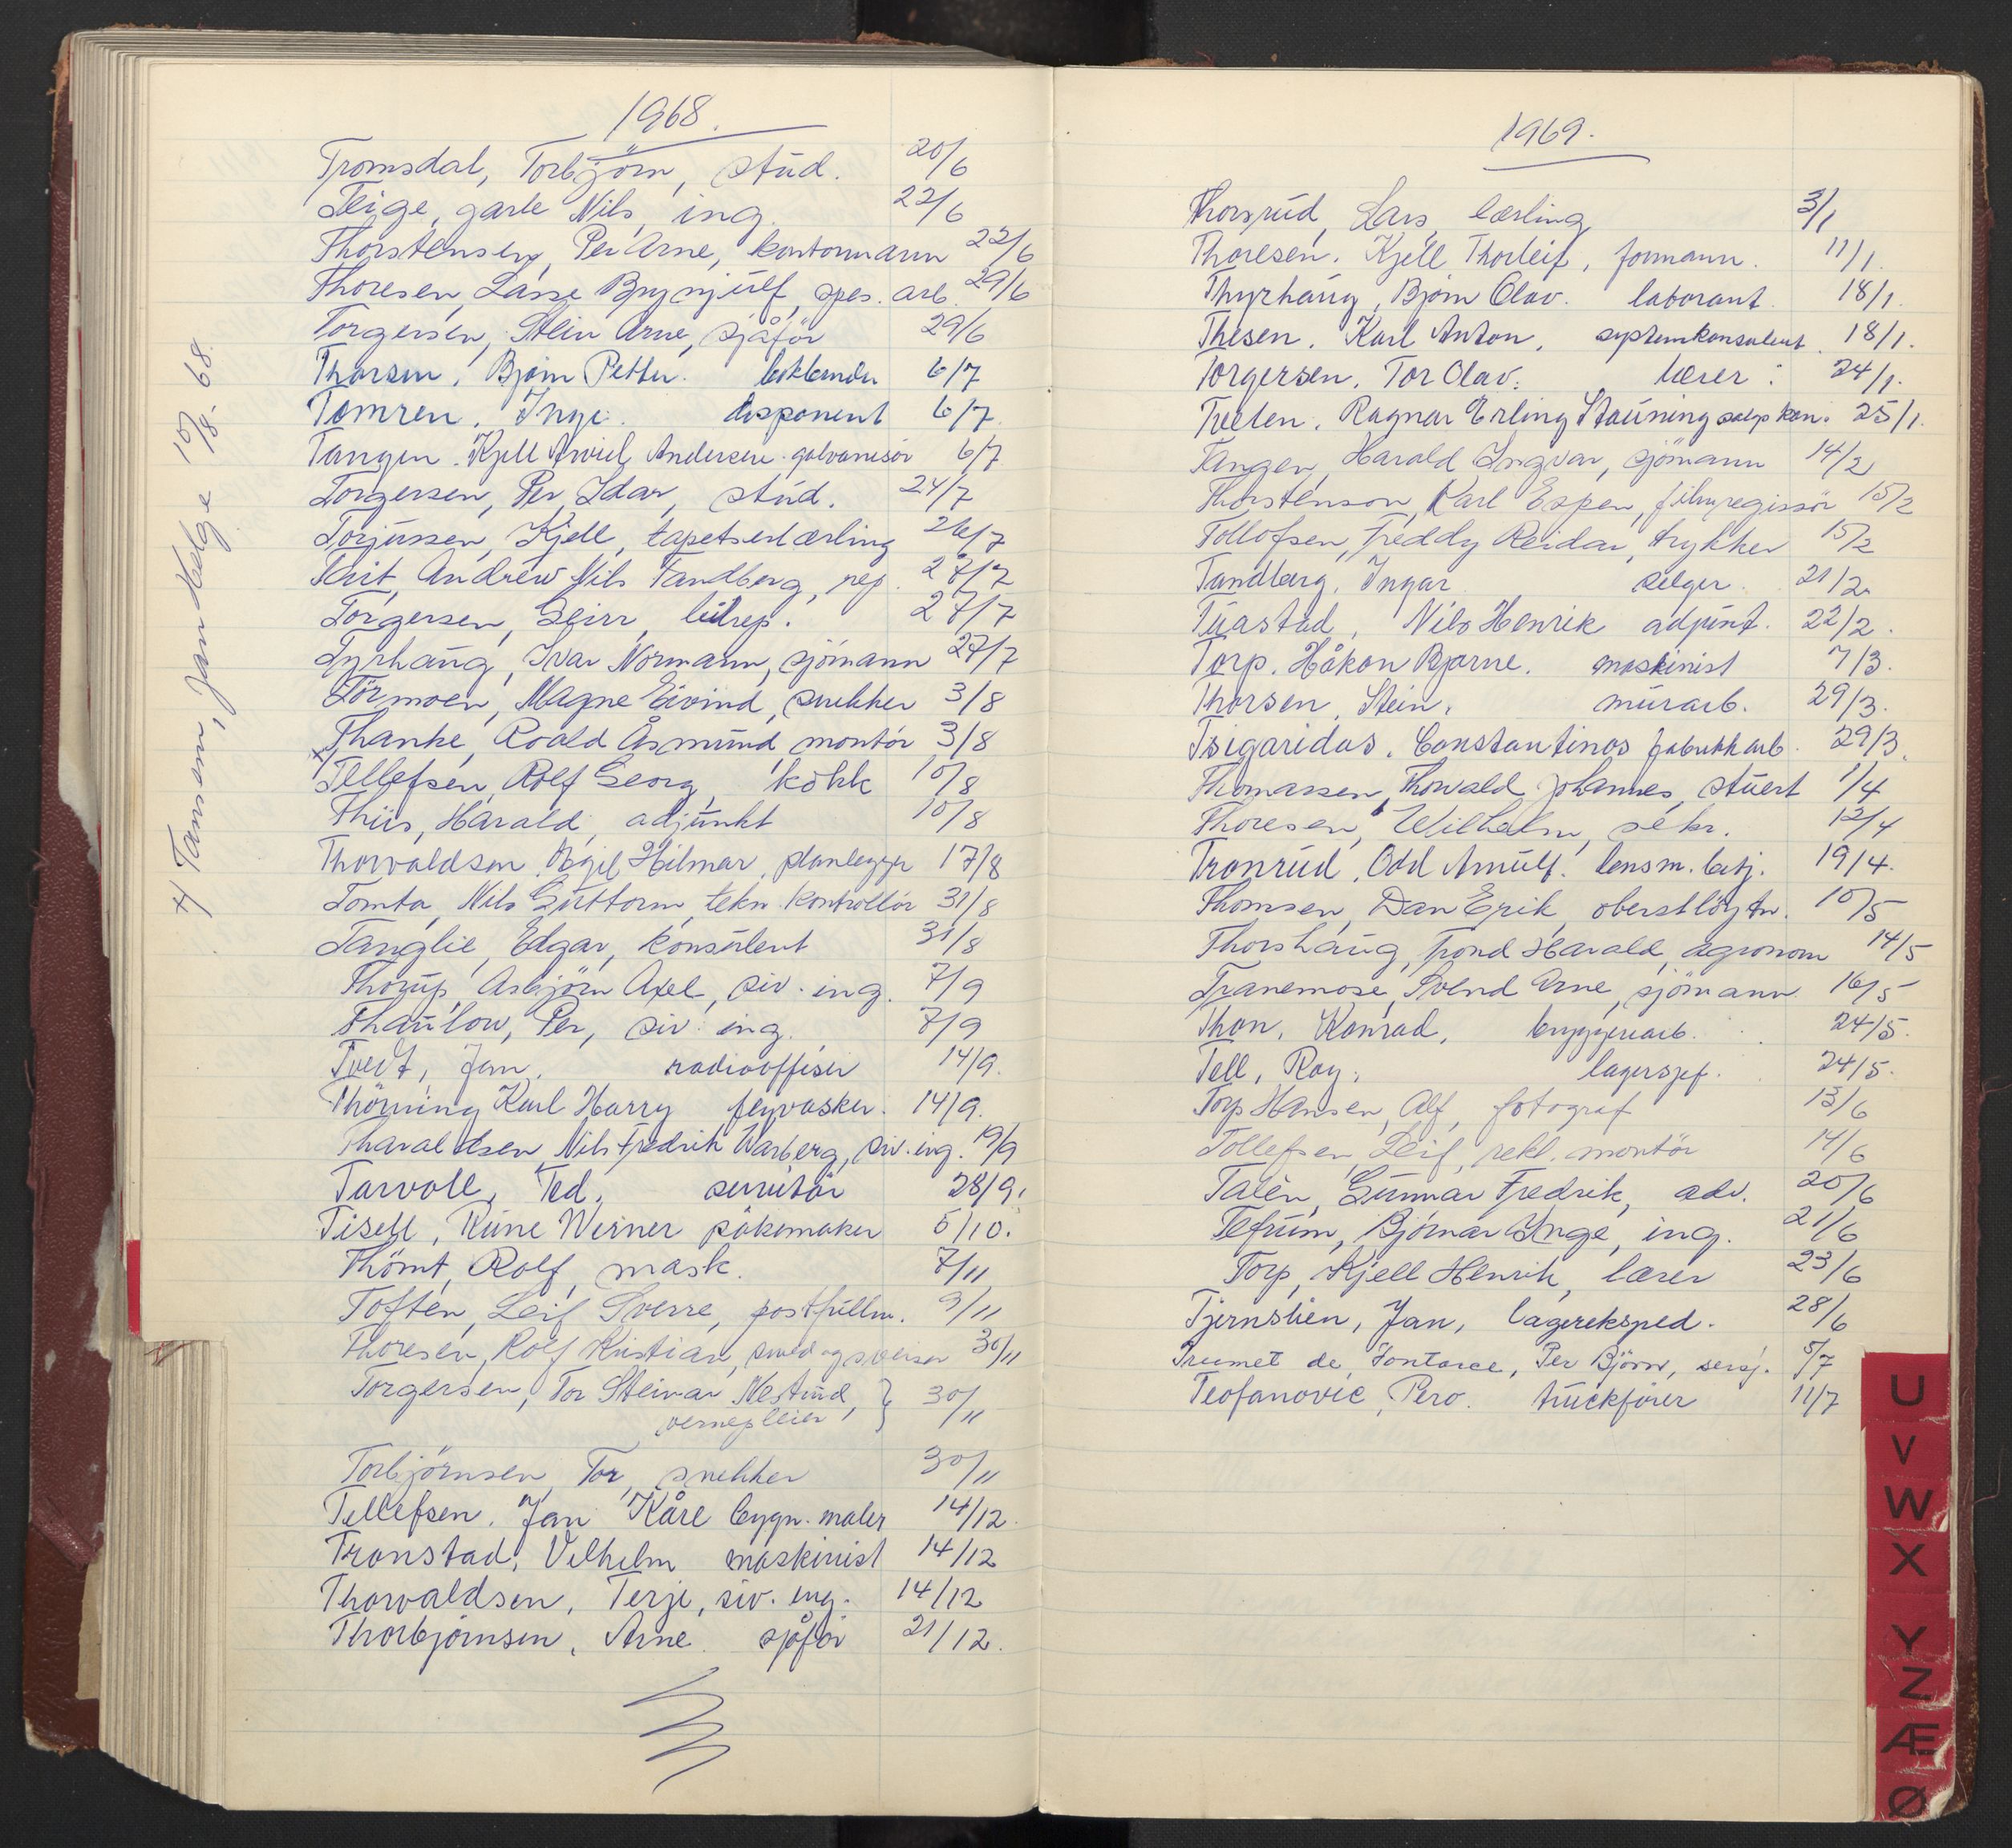 1968.
Tromsdal, Torbjörn, stud. 20/6
Teige, Nils, ing. 22/6
Thorstensen, Per Arne, kontormann 22/6
Thoresen, Lasse Brynjulf, spes. arb. 29/6
Torgersen, Stein Arne, sjåför 29/6
Thorsen, Bjørn Petter. 6/7
Tomren, Inge. disponent 6/7
Tangen. Kjell Arvid Andersen. galvanisör 6/7
Torgersen, Per Idar, stud. 24/7
Torjussen, Kjell, tapetserlærling 26/7
Tait, Andrew Nils Tandberg, rep. 27/7
Torgersen, Geirr, bilrep. 27/7
Tyrhaug, Ivar Normann, sjömann 27/7
Törmoen, Magne Eivind, snekker 3/8
Thanke, Roald Åsmund, montör 3/8
x/
Tellefsen, Rolf Georg, kokk 10/8
Thiis, Harald, adjunkt 10/8
Thorvaldsen, Hilmar, planlegger 17/8
Tomta, Nils Guttorm, tekn. kontrollör 31/8
Tanglie, Edgar, konsulent 31/8
Thorup, Asbjörn Axel, siv. ing. 7/9
Thaulow, Per, siv. ing. 7/9
Tvedt, Jan, radiooffiser 14/9.
Thörning Karl Harry 14/9.
Tharaldsen Nils Fredrik Warberg, siv. ing. 19/9
Tarvoll, Ted, servitör 28/9.
Tisell, Rune Werner pölsemaker 5/10.
Thömt, Rolf, mask. 7/11
Toften, Leif Sverre, postfullm. 9/11
Thoresen, Rolf Kristian, 30/11
Torgersen, Tor Steinar Nestrud, } 30/11
vernepleier
Torbjörnsen, Tor, snekker 30/11
Tellefsen. Jan Kåre bygn. maler 14/12.
Tronstad, Vilhelm maskinist 14/12
Thorvaldsen, Terje, siv. ing. 14/12
Thorbjørnsen, Arne. sjåför 21/12.
x/ Tamsen, Jan Helge 10/8-68.
1969.
Thorsrud, Lars, lærling 3/1
Thoresen. Kjell Thorleif, formann. 11/1.
Thyrhaug, Bjørn Olav. laborant. 18/1.
Thesen. Karl Anton, systemkonsulent. 18/1.
Torgersen. Tor Olav. lærer. 24/1.
Tveten. Ragnar Erling Stauning salgskon. 25/1.
Tangen, Harald Ingvar, sjömann 14/2
Thorstenson, Karl Espen, filmregissör 15/2
Tollofsen, Freddy Reidar, trykker 15/2
Tandberg. Ingar selger. 21/2.
Tuastad, Nils Henrik adjunt. 22/2.
Torp. Håkon Bjarne. maskinist 7/3.
Thorsen, Stein. murarb. 29/3.
Tsigaridas. Constantinos fabrikkarb. 29/3.
Thomassen, Thorvald Johannes, stuert 1/4
Thoresen, Wilhelm, sekr. 12/4
Tronrud, Odd Arnulf. lensm. betj. 19/4.
Thomsen, Dan Erik, oberstlöytn. 10/5
Thorshaug, Trond Harald, agronom 14/5
Tranemose, Svend Arne, sjömann 16/5
Thon, Konrad, bryggeriarb. 24/5.
Tell, Roy, lagersjef. 24/5.
Torp Hansen, Alf, fotograf 13/6
Tollefsen, Leif, rekl. montör 14/6
Talén, Gunnar Fredrik, adv. 20/6
Tefrum, Björnar Inge, ing. 21/6
Torp, Kjell Henrik, lærer 23/6
Tjernslien, Jan, lagereksped. 28/6
de Per Björn, sersj. 5/7
Teofanovic, Pero. truckfører 11/7
U
V
W
X
Y
Z
Æ
Ø